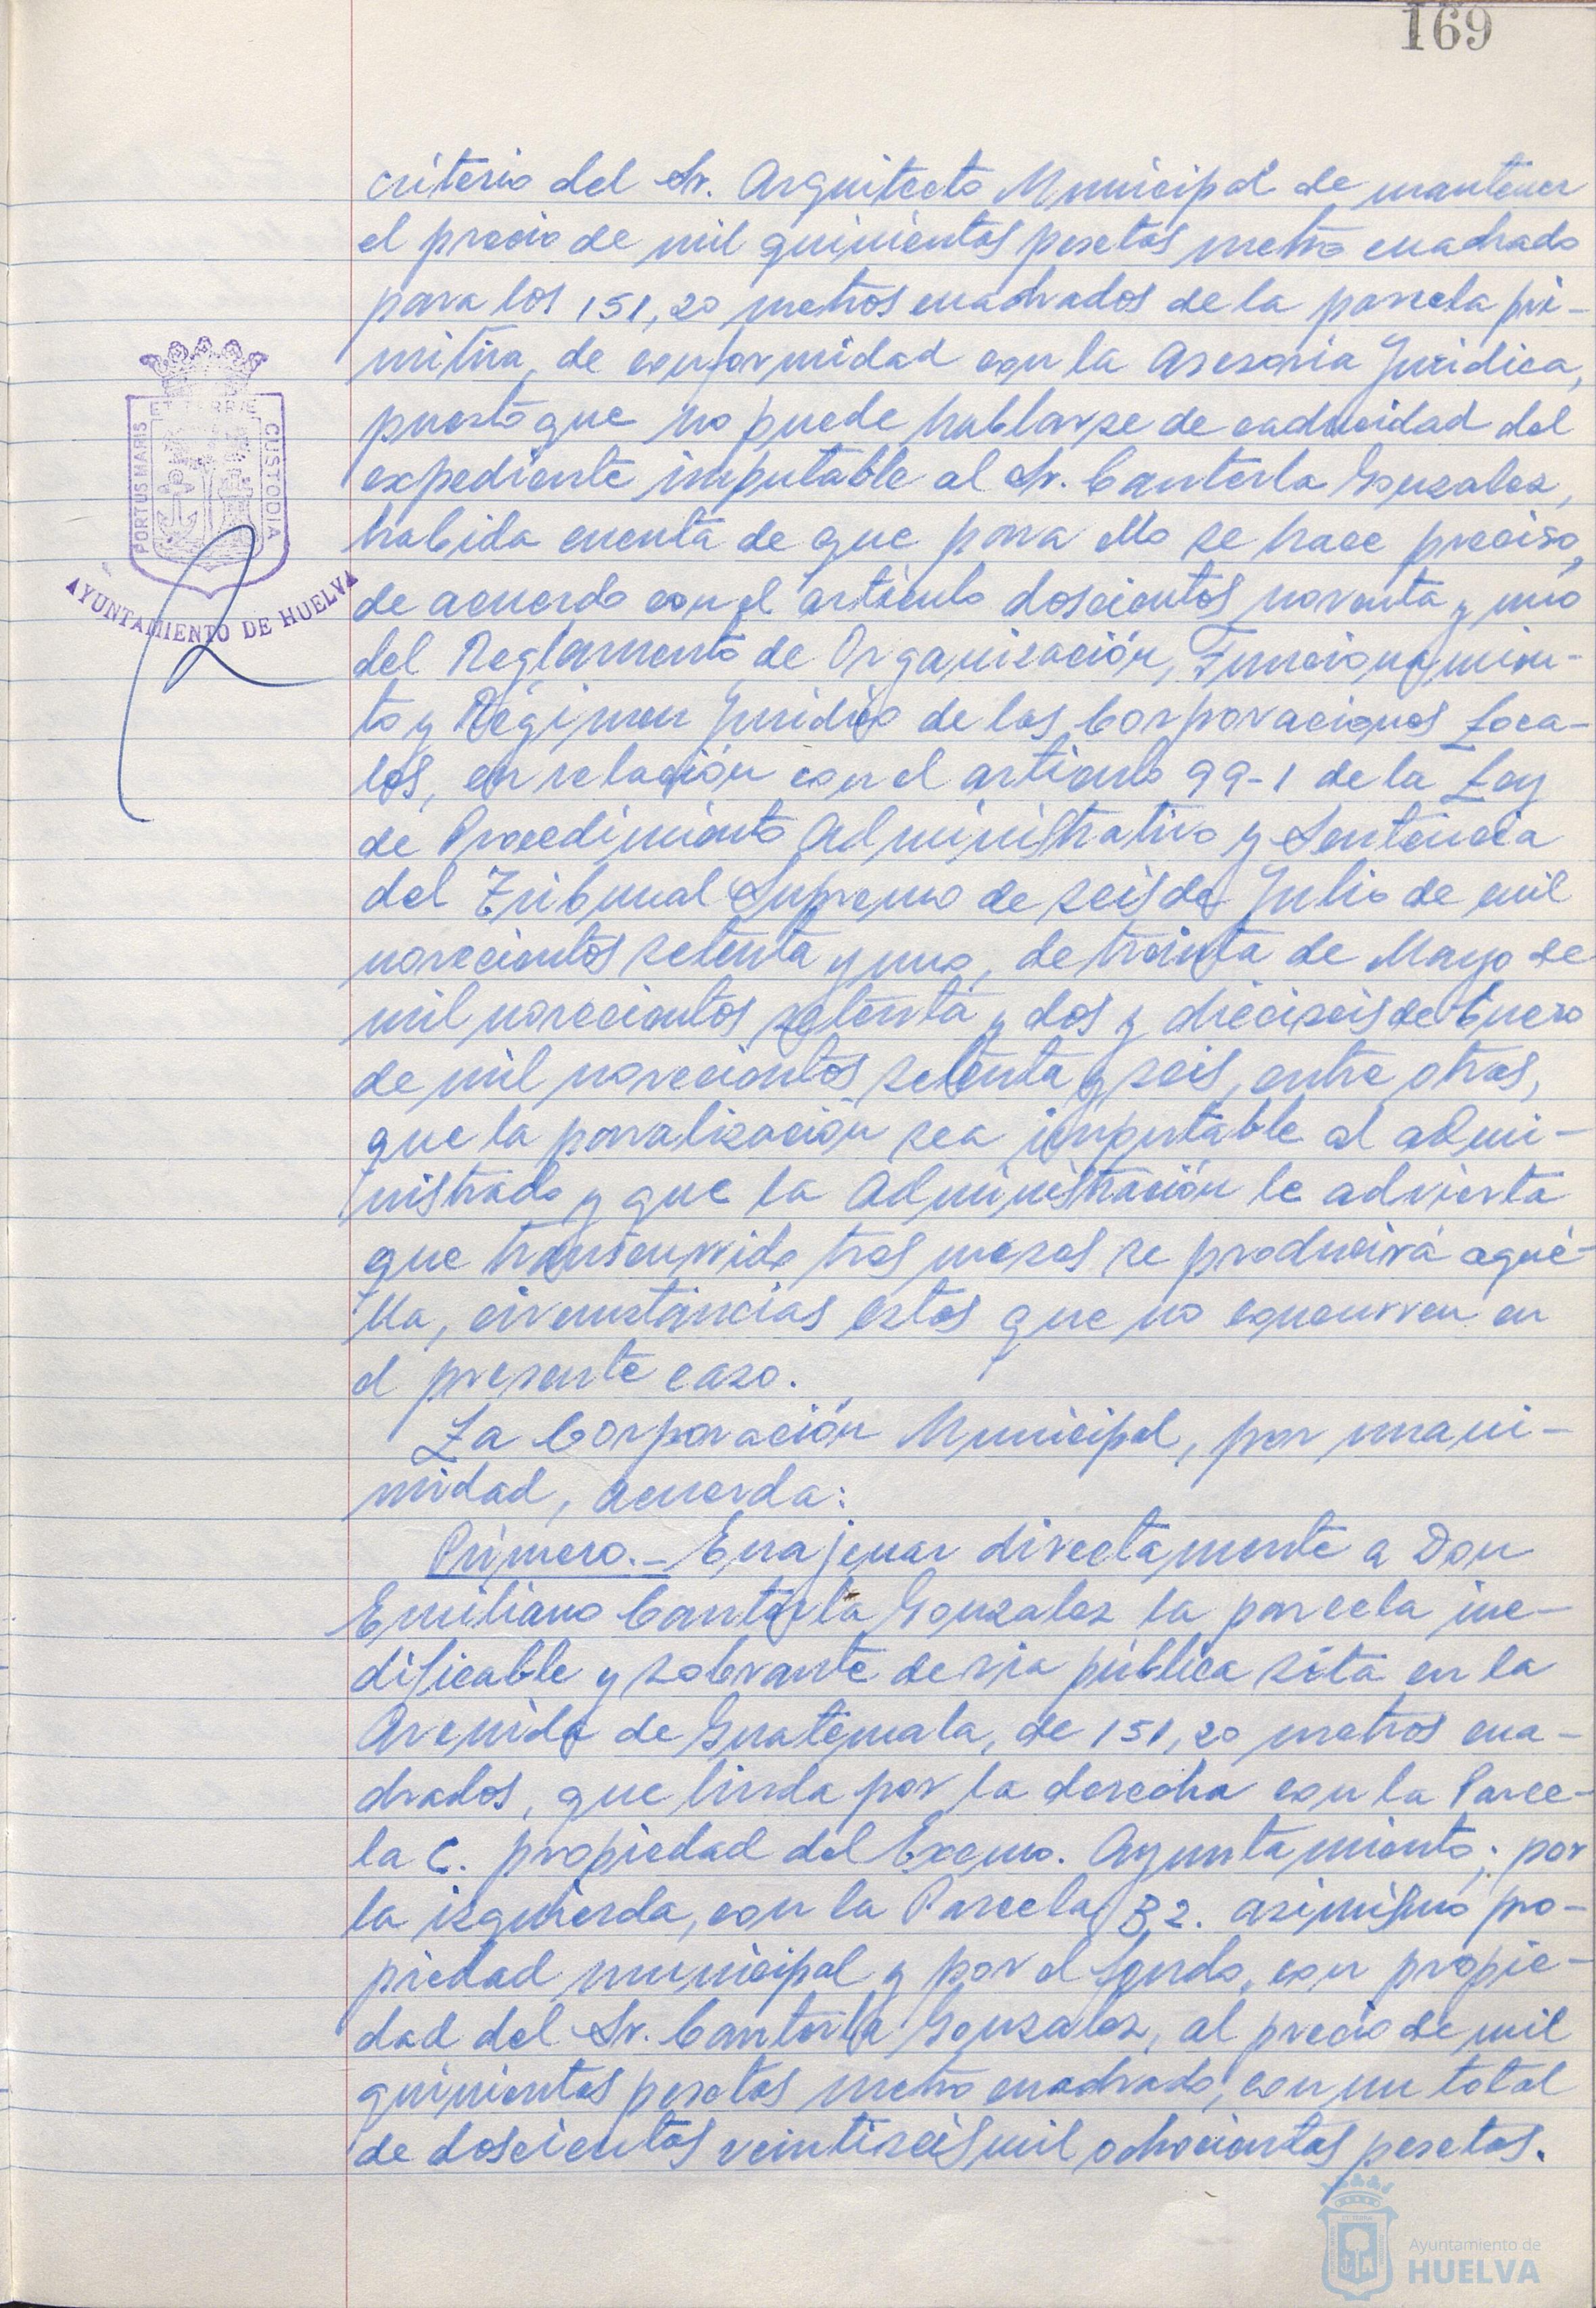 169
criterio del Sr. Arquitecto Municipal de mantener
el precio de mil quinientas pesetas metro cuadrado
para los 151,20 metros cuadrados de la parcela pri-
mitiva, de conformidad con la Asesoría Jurídica,
puesto que no puede hablarse de caducidad del
expediente imputable al Sr. Canterla Gonzalez,
habida cuenta de que para ello se hace preciso,
de acuerdo con el artículo doscientos noventa y uno
del Reglamento de Organización, Funcionamien-
to y Régimen Jurídico de las Corporaciones Loca-
les, en relación con el artículo 99-1 de la Ley
de Procedimiento Administrativo y Sentencia
del Tribunal Supremo de seis de Julio de mil
novecientos setenta y uno, de treinta de Mayo de
mil novecientos setenta y dos y dieciseis de Enero
de mil novecientos setenta y seis, entre otras,
que la paralización sea imputable al admi-
nistrado y que la Administración le advierta
que transcurrido tres meses se producirá aqué-
lla, circunstancias estas que no concurren en
el presente caso.
La Corporación Municipal, por unani-
midad, acuerda:
Primero.- Enajenar directamente a Don
Emiliano Canterla Gonzalez la parcela ine-
dificable y sobrante de via pública sita en la
Avenida de Guatemala, de 151,20 metros cua-
drados, que linda por la derecha con la Parce-
la C. propiedad del Excmo. Ayuntamiento; por
la izquierda, con la Parcela B2. asimismo pro-
piedad municipal y por el fondo, con propie-
dad del Sr. Canterla Gonzalez, al precio de mil
quinientas pesetas metro cuadrado, con un total
de doscientas veintiseis mil ochocientas pesetas.
PORTUS MARIS ET TERRAE CUSTODIA
AYUNTAMIENTO DE HUELVA
Ayuntamiento de
HUELVA